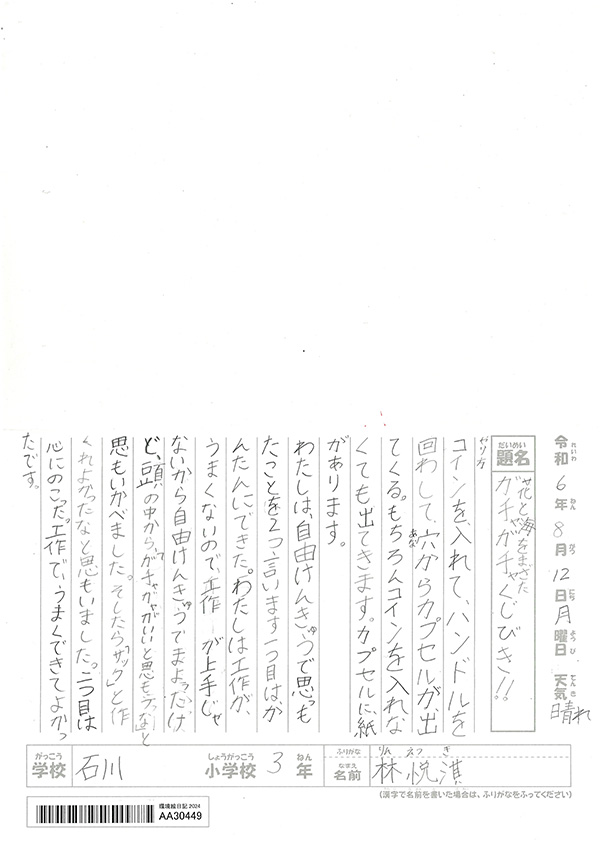 令和6年8月12日月曜日 天気 晴れ
れいわ ねん がつ にち ようび てんき
だいめい
題名
花と海をまぜた
ガチャガチャくじびき!!
やり方
コインを、入れて、ハンドルを
回わして、穴からカプセルが、出
あな
てくる。もちろんコインを入れな
くても出てきます。カプセルに、紙
があります。
わたしは、自由けんきゅうで思っも
たことを2つ、言います一つ目は、か
んたんにできた。わたしは工作が、
うまくないので、工作 が上手じゃ
ないから自由けんきゅうでまよっだけ
ど、頭の中からガチャガチャがいいと思も
思もいかべました。そしたら「サック」と作
くれよかったなと思もいました。二つ目は
心にのこっだ。工作で、うまくできてよかっ
たです。
がっこう
学校
石川
しょうがっこう
小学校
3
ねん
年
ふりがな
りん えつ き
なまえ
名前
林悦淇
(漢字で名前を書いた場合は、ふりがなをふってください)
環境絵日記 2024
AA30449